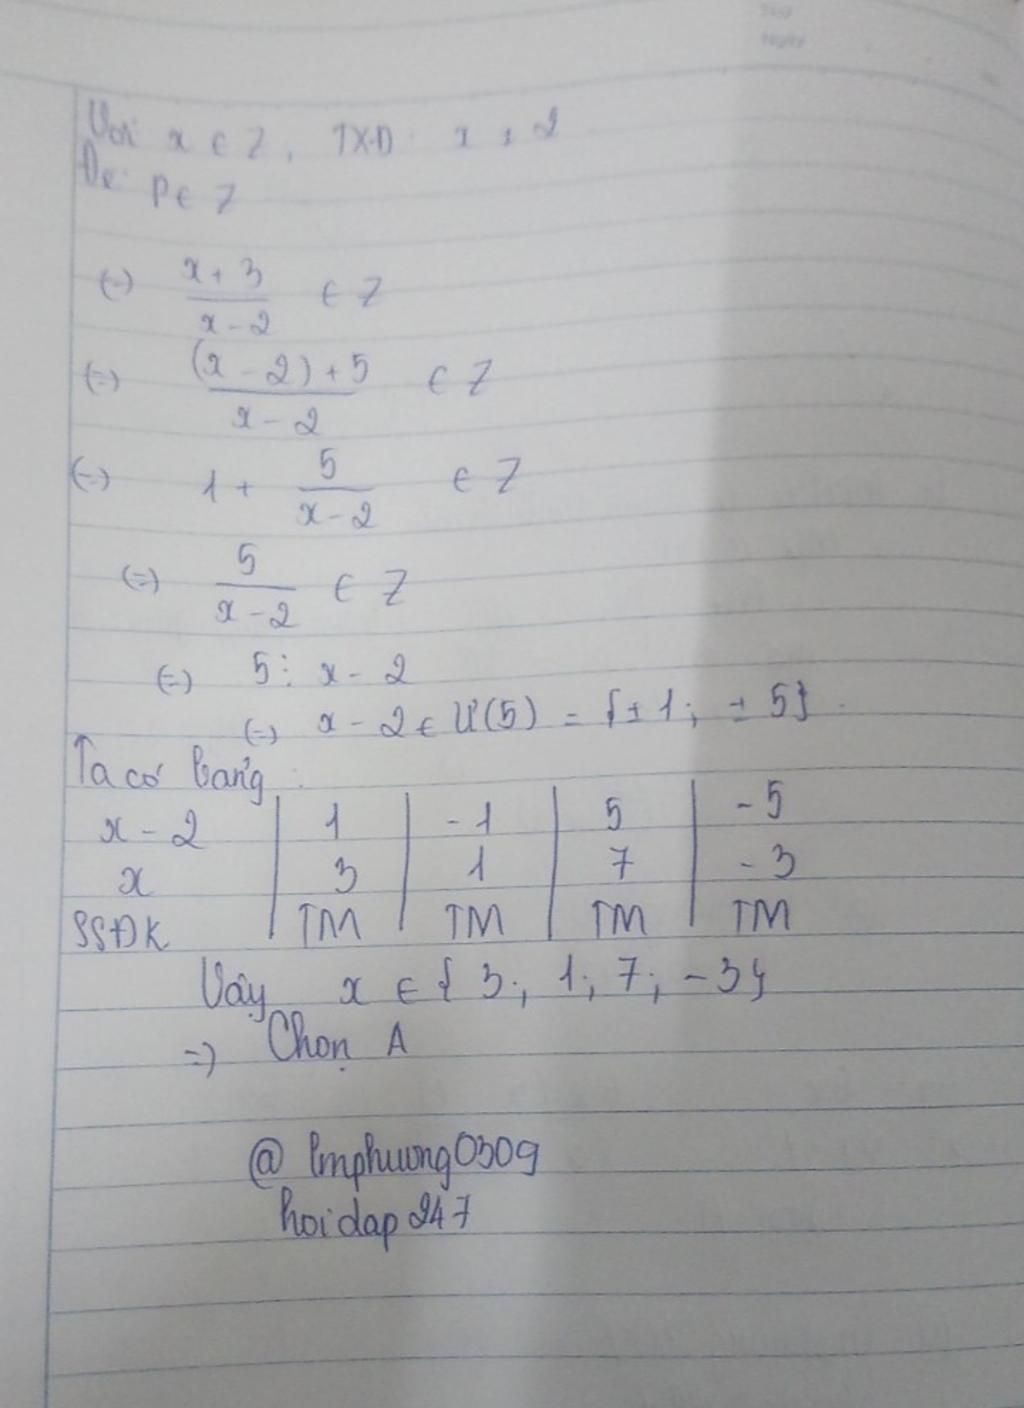 Với x ∈ Z, TXĐ: x ≠ 2
Để P ∈ Z
(=) x + 3 / x - 2 ∈ Z
(=) (x - 2) + 5 / x - 2 ∈ Z
(=) 1 + 5 / x - 2 ∈ Z
(=) 5 / x - 2 ∈ Z
(=) 5 ⋮ x - 2
(=) x - 2 ∈ Ư(5) = {±1; ±5}.
Ta có bảng:
x - 2 | 1 | -1 | 5 | -5
x | 3 | 1 | 7 | -3
SSĐK | TM | TM | TM | TM
Vậy x ∈ { 3; 1; 7; -3}
=) Chọn A
@lmphuong0309
hoidap247